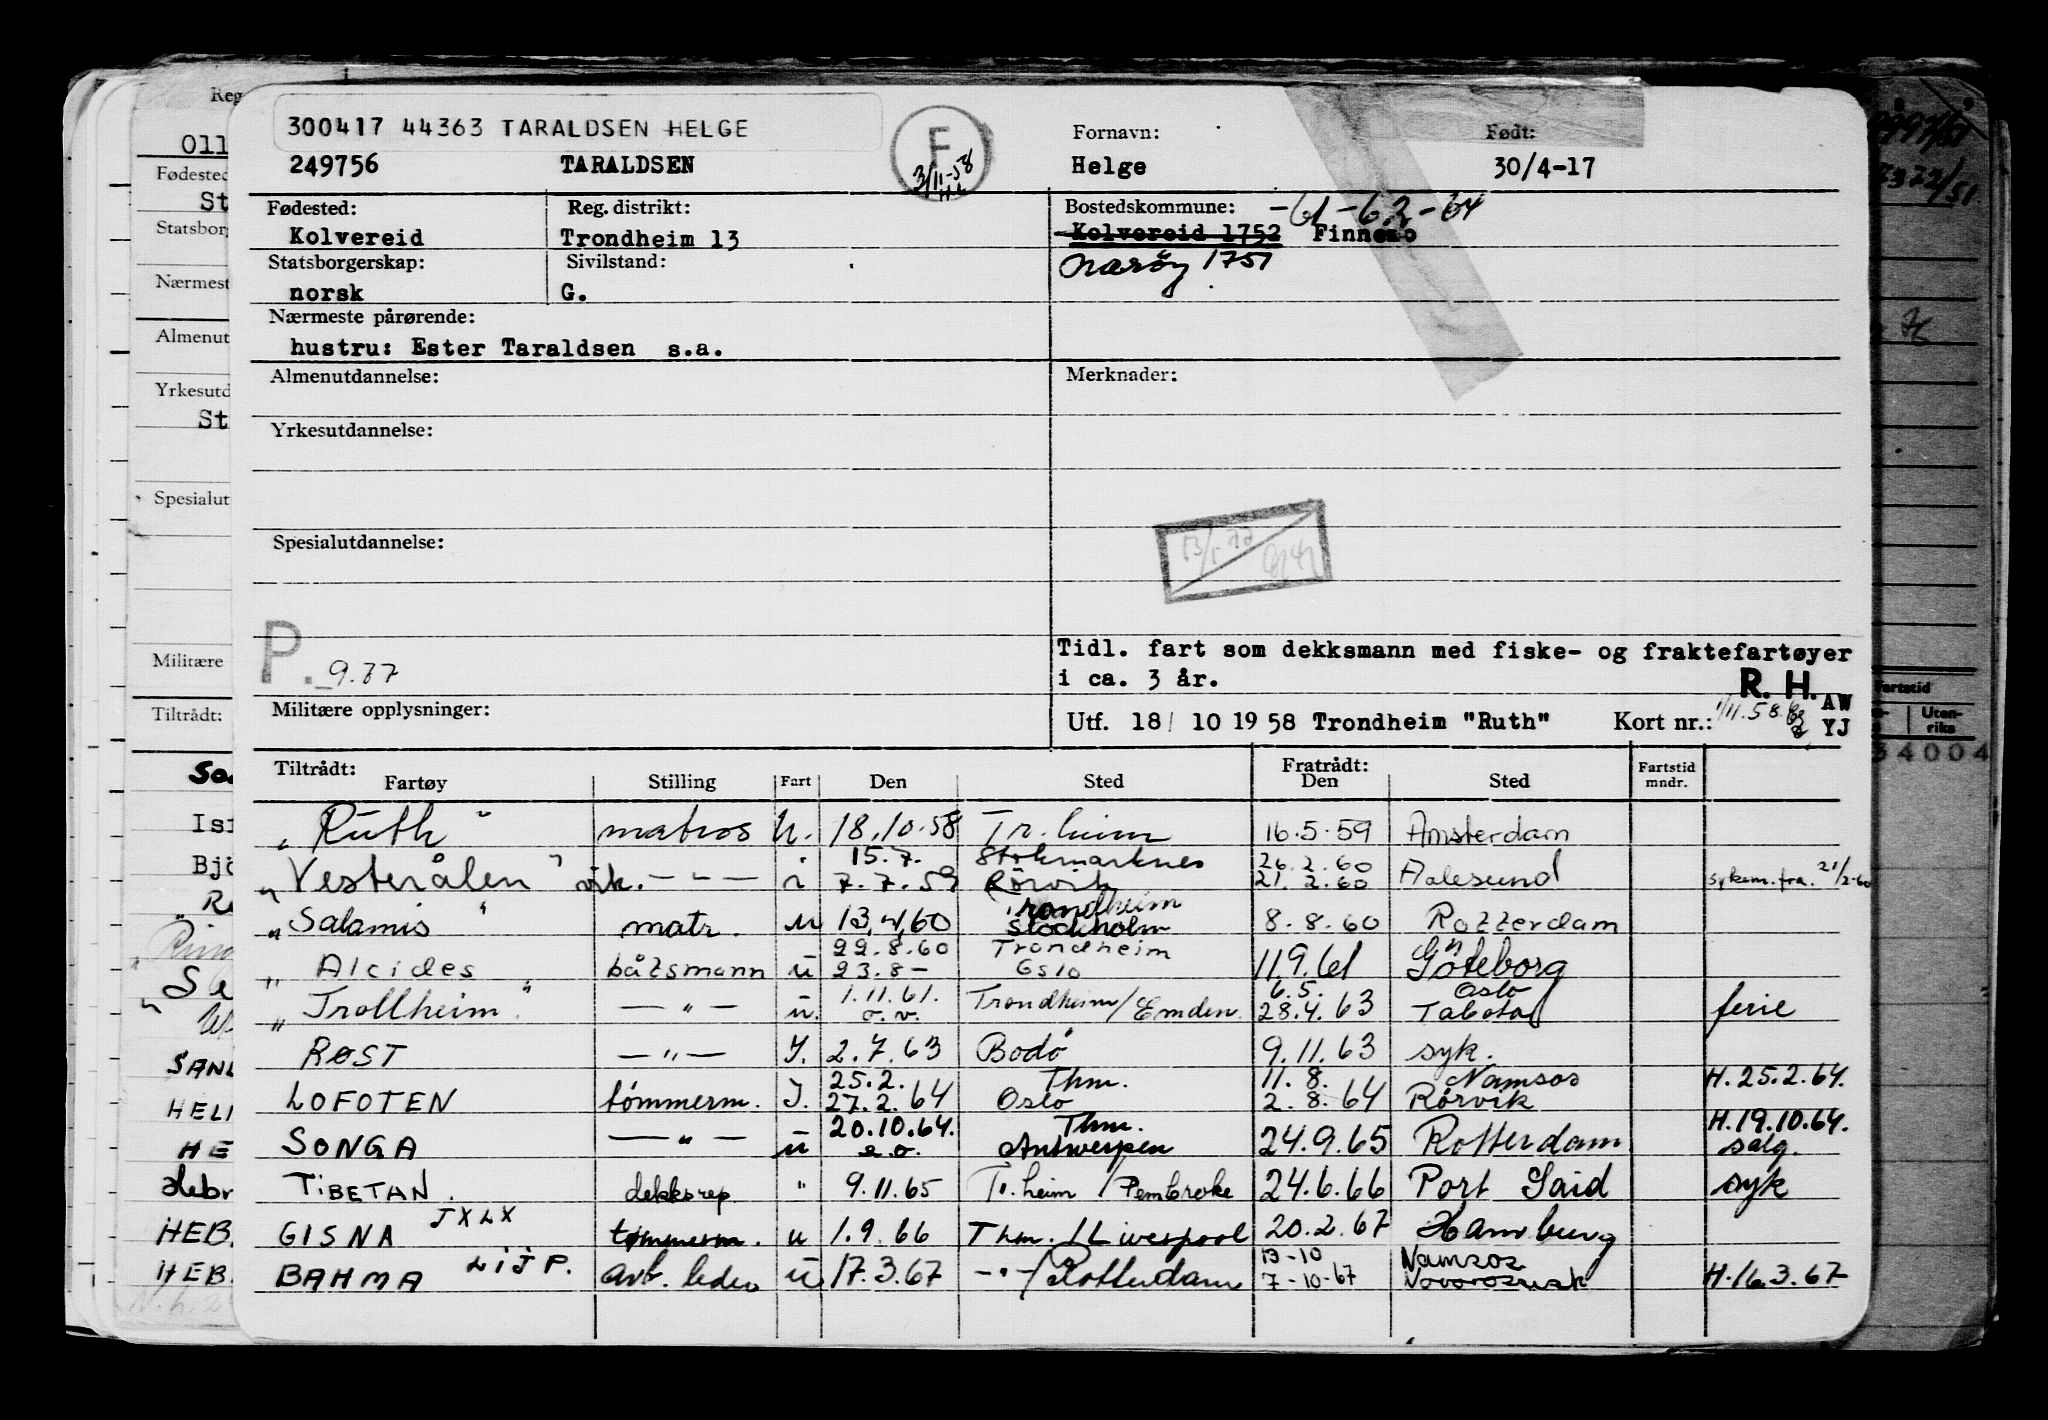 300417 44363 TARALDSEN HELGE
249756 TARALDSEN
F
3/11-58
Fornavn: Født:
Helge 30/4-17
Fødested: Reg. distrikt: Bostedskommune: -61-62-64
Kolvereid Trondheim 13 Kolvereid 1752
Statsborgerskap: Sivilstand: Nærøy 1751
norsk G.
Nærmeste pårørende:
hustru: Ester Taraldsen s.a.
Almenutdannelse: Merknader:
Yrkesutdannelse:
Spesialutdannelse:
P. 9.77
Tidl. fart som dekksmann med fiske- og fraktefartøyer
i ca. 3 år.
R. H. AW
Militære opplysninger: Utf. 18/ 10 1958 Trondheim "Ruth" Kort nr.: YJ
Tiltrådt: Fratrådt: Fartstid
Fartøy Stilling Fart Den Sted Den Sted mndr.
"Ruth" matros U. 18.10.58 Tr.heim 16.5.59 Amsterdam
15.7. Stokmarknes 26.2.60
"Vesterålen" vik. — " — i 7.7.59 Rørvik 21.2.60 Aalesund sykem. fra. 21/2-60
Trondheim
"Salamis" matr. u 13.4.60 Stockholm 8.8.60 Rotterdam
22.8.60 Trondheim
" Alcides båtsmann u 23.8- Oslo 11.9.61 Göteborg
1.11.61. 6.5. Oslo
"Trollheim" — " — u. o.v. Trondheim/Emden. 28.4.63 ferie
RØST — " — I. 2.7.63 Bodø 9.11.63 syk.
25.2. Thm. 11.8. Namsos H.25.2.64.
LOFOTEN tømmerm. I. 27.2.64 Oslo 2.8.64 Rørvik
20.10.64. Thm. H.19.10.64.
SONGA — " — u e.o. Antwerpen 24.9.65 Rotterdam salg.
TIBETAN. dekksrep " 9.11.65 Tr.heim / Pembroke 24.6.66 Port Said syk
GISNA JXLX tømmerm. u 1.9.66 Thm. / Liverpool 20.2.67 Hamburg
13-10 Namsos
BAHMA LIJP. arb. leder u 17.3.67 — " — / Rotterdam 7-10-67 Novorossisk H.16.3.67